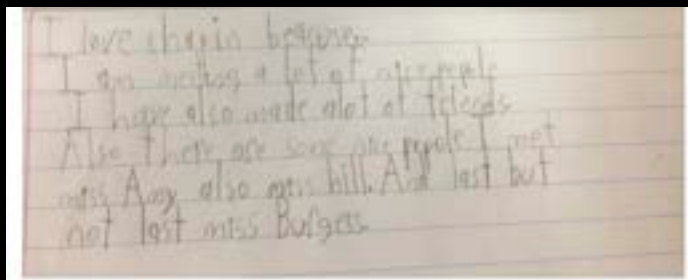 I love because
I am meeting a lot of nice people
I have also made alot of friends
Also There are some nice pepole I met
miss Amy also miss hill. And last but
not last miss Burgess